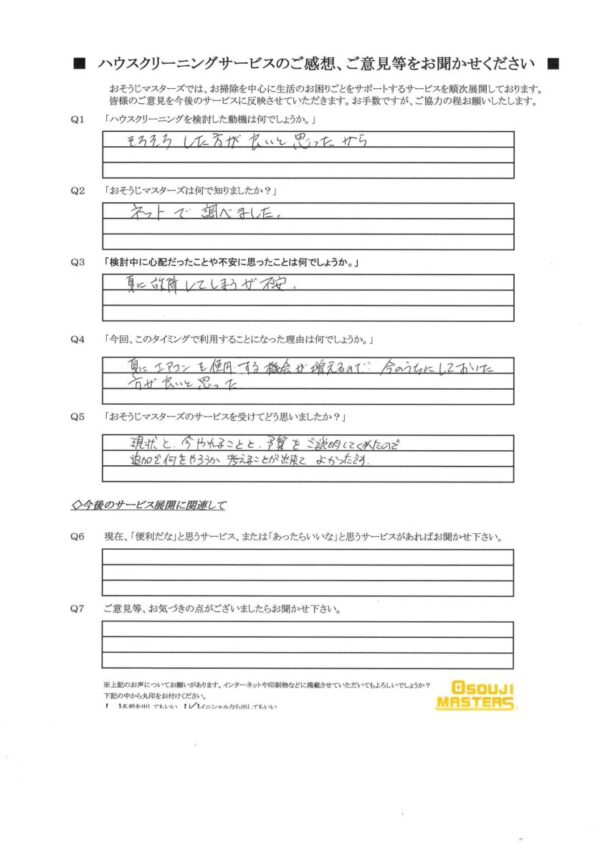 ■ ハウスクリーニングサービスのご感想、ご意見等をお聞かせください ■
おそうじマスターズでは、お掃除を中心に生活のお困りごとをサポートするサービスを順次展開しております。
皆様のご意見を今後のサービスに反映させていただきます。お手数ですが、ご協力の程お願いしたします。
Q1 「ハウスクリーニングを検討した動機は何でしょうか。」
そろそろ した方が良いと思ったから
Q2 「おそうじマスターズは何で知りましたか？」
ネットで調べました。
Q3 「検討中に心配だったことや不安に思ったことは何でしょうか。」
夏に故障してしまうが不安.
Q4 「今回、このタイミングで利用することになった理由は何でしょうか。」
夏にエアコンを使用する機会が増えるので 今のうちにしておいた
方が良いと思った
Q5 「おそうじマスターズのサービスを受けてどう思いましたか？」
現状と、今やれることと、予算をご説明してくれたので
追加で何をやろうか 考えることが出来て よかったです.
◇今後のサービス展開に関連して
Q6 現在、「便利だな」と思うサービス、または「あったらいいな」と思うサービスがあればお聞かせ下さい。
Q7 ご意見等、お気づきの点がございましたらお聞かせ下さい。
※上記のお声についてお願いがあります。インターネットや印刷物などに掲載させていただいてもよろしいでしょうか？
下記の中から丸印をお付けください。
OSOUJI
MASTERS